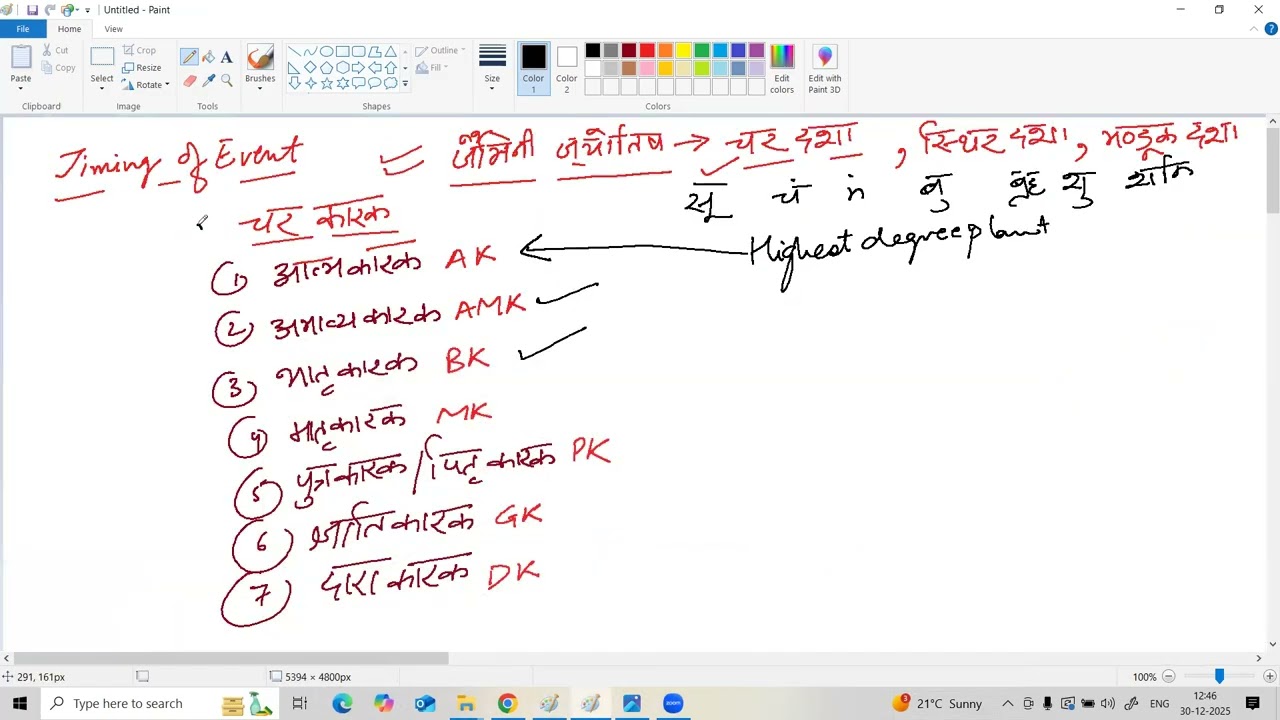 Untitled - Paint
File Home View
Cut Copy Paste Clipboard
Crop Resize Rotate Select Image
Tools
Brushes
Outline Fill Shapes
Size
Color 1 Color 2 Edit colors Colors
Edit with Paint 3D
Timing of Event जैमिनी ज्योतिष → चर दशा , स्थिर दशा, मण्डूक दशा
सू चं मं बु बृह शु शनि
चर कारक
1 आत्मकारक AK ← Highest degree planet
2 अमात्यकारक AMK
3 भातृकारक BK
4 मातृकारक MK
5 पुत्रकारक / पितृकारक PK
6 ज्ञातिकारक GK
7 दाराकारक DK
291, 161px 5394 × 4800px 100%
Type here to search 3 21°C Sunny ENG 12:46
30-12-2025